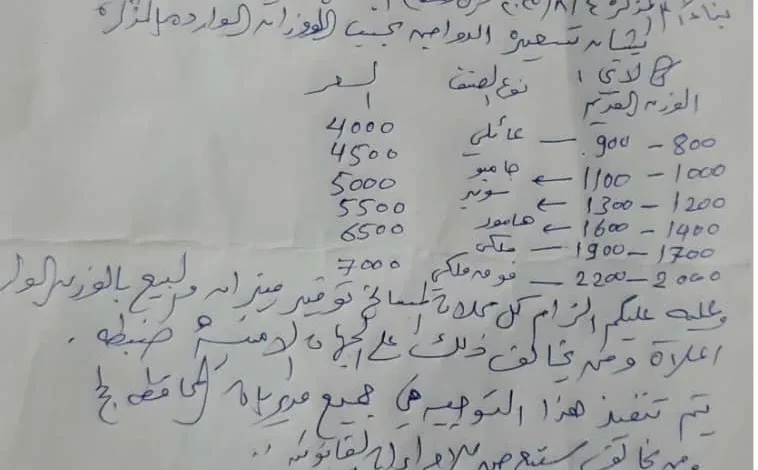 بشأن تسعيرة الدواجن بحسب الأوزان الواردة بالمذكرة
كالآتي :
الوزن القديم نوع الصنف السعر
800 - 900 — عائلي 4000
1000 - 1100 ← جامبو 4500
1200 - 1300 ← سوبر 5000
1400 - 1600 ← هامور 5500
1700 - 1900 — ملكي 6500
2000 - 2200 — فوق ملكي 7000
وعليه عليكم الزام كل محلات المسالخ توفير ميزان والبيع بالوزن
اعلاة ومن يخالف ذلك على الجهات الامنية ضبطه .
يتم تنفيذ هذا التوجيه في جميع مديريات المحافظة
ومن يخالف للاجراءات القانونية ..